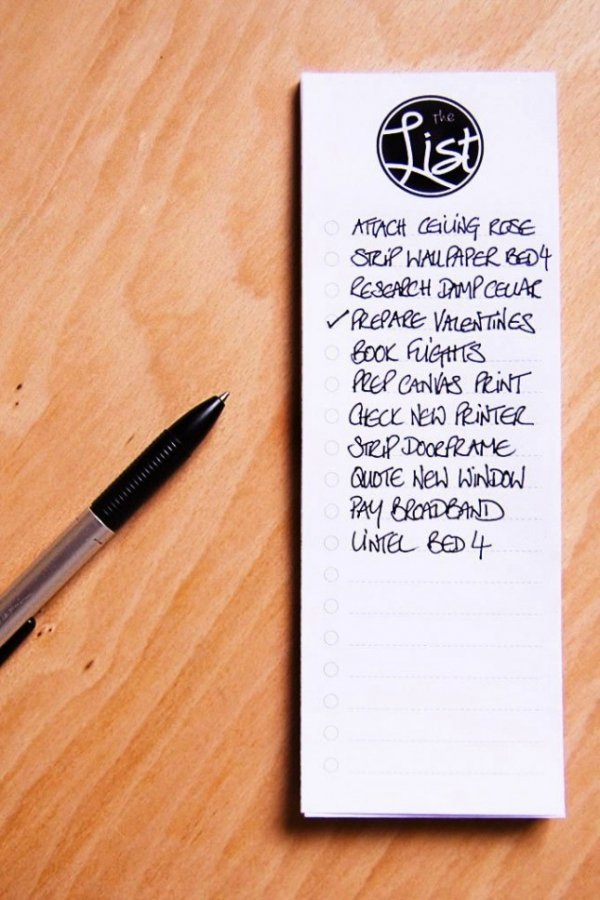 the
List
ATTACH CEILING ROSE
STRIP WALLPAPER BED 4
RESEARCH DAMP CELLAR
✓ PREPARE VALENTINES
BOOK FLIGHTS
PREP CANVAS PRINT
CHECK NEW PRINTER
STRIP DOORFRAME
QUOTE NEW WINDOW
PAY BROADBAND
LINTEL BED 4